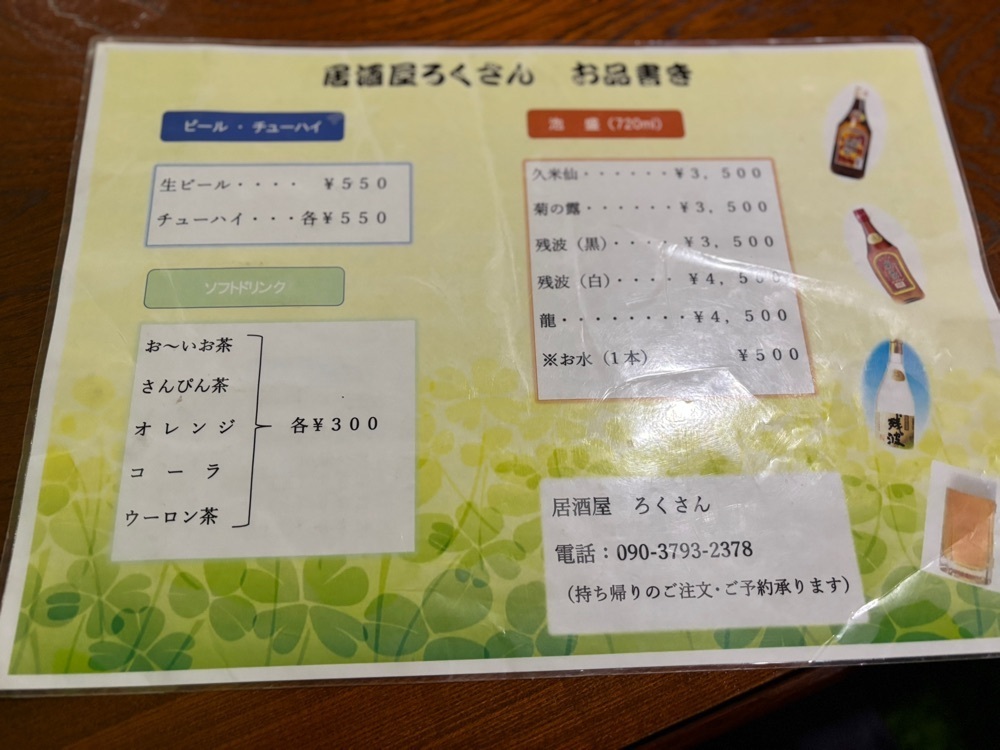 居酒屋ろくさん　お品書き
ビール・チューハイ
生ビール・・・・　¥550
チューハイ・・・各¥550
ソフトドリンク
お〜いお茶
さんぴん茶
オレンジ
コーラ
ウーロン茶
各¥300
泡　盛（720ml）
久米仙・・・・・・¥3，500
菊の露・・・・・・¥3，500
残波（黒）・・・・¥3，500
残波（白）・・・・¥4，500
龍・・・・・・・・¥4，500
※お水（1本）　¥500
残波
居酒屋　ろくさん
電話：090-3793-2378
（持ち帰りのご注文･ご予約承ります）